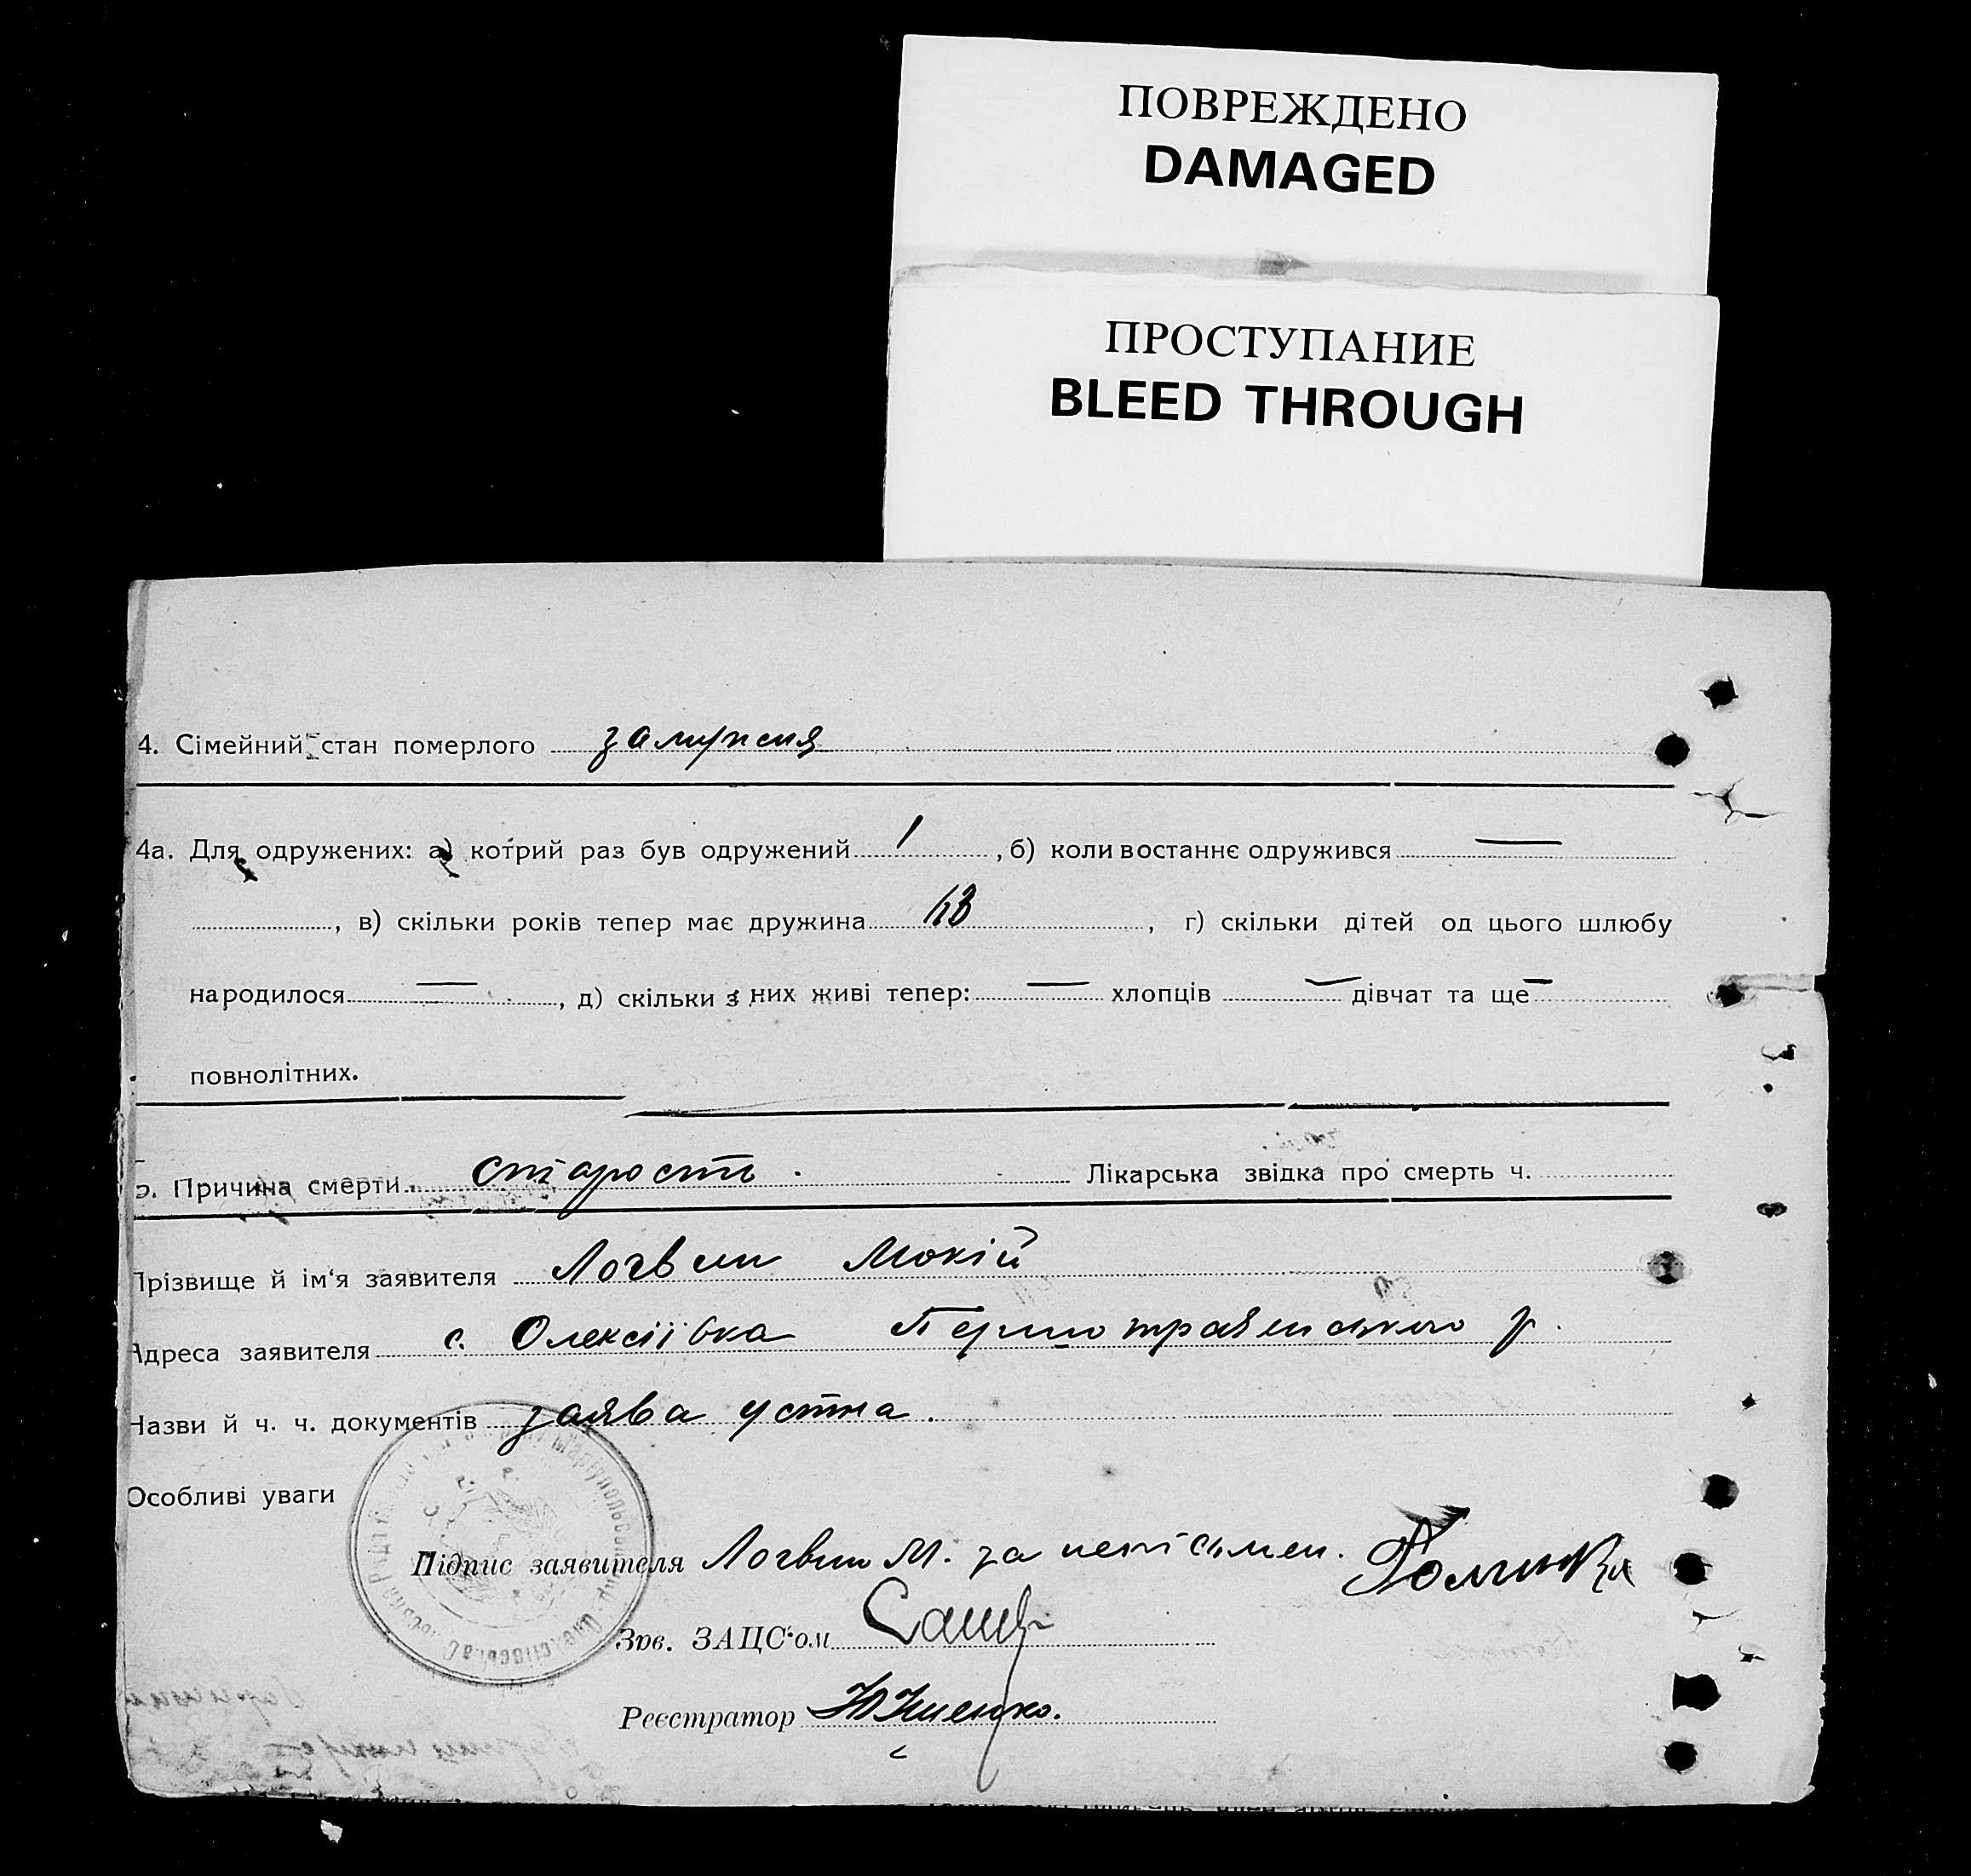 ПОВРЕЖДЕНО
DAMAGED
ПРОСТУПАНИЕ
BLEED THROUGH
4. Сімейний стан померлого замужня
4а. Для одружених: а) котрий раз був одружений 1, б) коли востаннє одружився —
, в) скільки років тепер має дружина, г) скільки дітей од цього шлюбу
народилося —, д) скільки з них живі тепер: — хлопців — дівчат та ще —
повнолітних.
5. Причина смерти старость. Лікарська звідка про смерть ч.
Прізвище й ім'я заявителя Логвин Мокій
Адреса заявителя с. Олексіївка Першотравенського р.
Назви й ч. ч. документів заява устна.
Особливі уваги
Підпис заявителя Логвин М. за неписьмен.
Зав. ЗАЦС'ом
Реєстратор